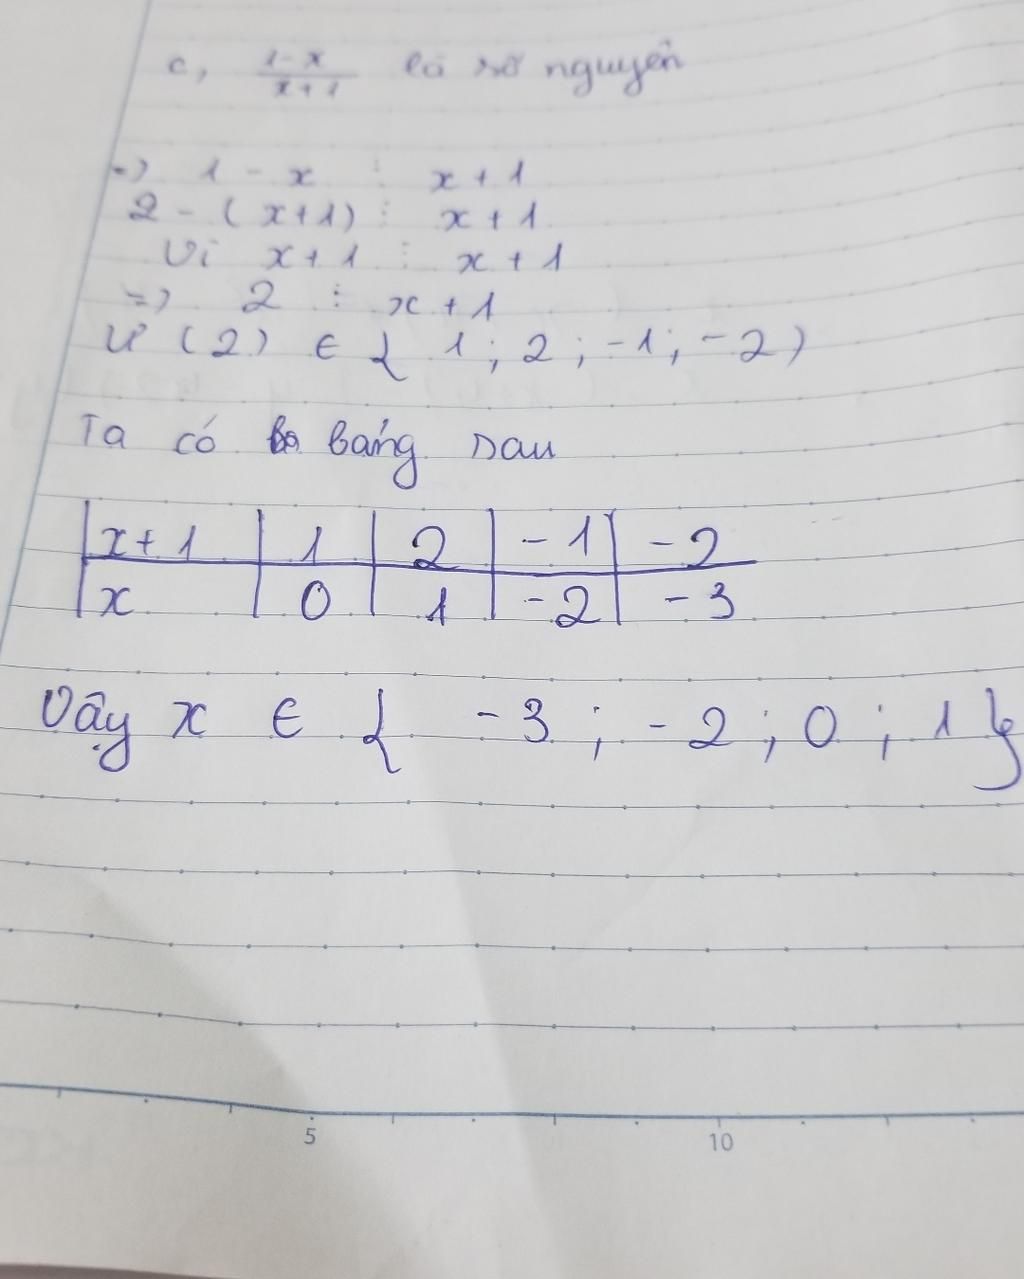 c, \frac{1-x}{x+1} là số nguyên
=> 1 - x ⋮ x + 1
2 - (x+1) ⋮ x + 1
Vì x + 1 ⋮ x + 1
=> 2 ⋮ x + 1
Ư (2) ∈ { 1 ; 2 ; -1 ; -2 )
Ta có bảng sau
x+1 | 1 | 2 | -1 | -2
x | 0 | 1 | -2 | -3
Vậy x ∈ { -3 ; -2 ; 0 ; 1 }
5 10